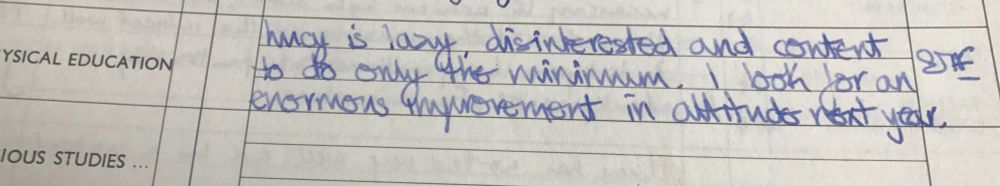 YSICAL EDUCATION
Lucy is lazy, disinterested and content
to do only the minimum. I look for an
enormous improvement in attitude next year.
IOUS STUDIES ...